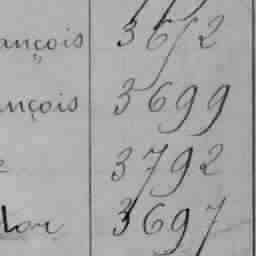 ançois 3652
nçois 3699
3792
3697